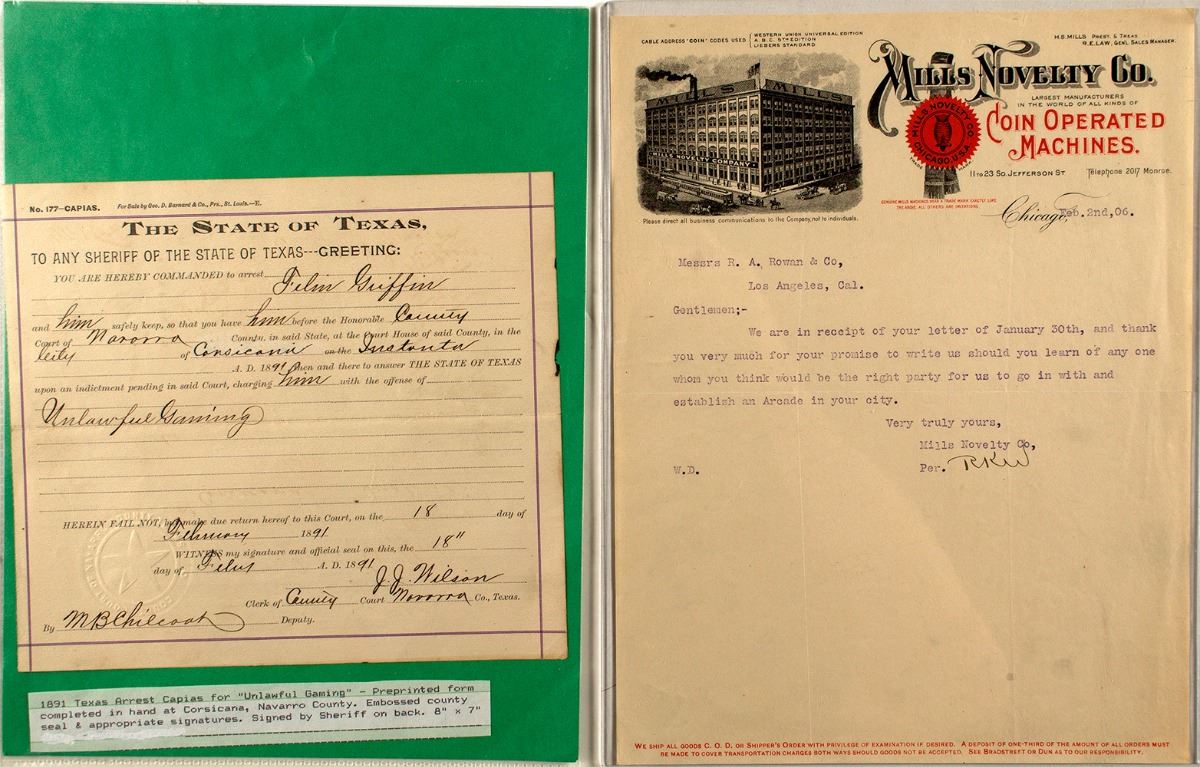 No. 177—CAPIAS. For Sale by Geo. D. Barnard & Co., Prs., St. Louis.—E.
THE STATE OF TEXAS,
TO ANY SHERIFF OF THE STATE OF TEXAS---GREETING:
YOU ARE HEREBY COMMANDED to arrest Griffin
and him safely keep, so that you have him before the Honorable County
Court of Navarro County, in said State, at the Court House of said County, in the
City of Corsicana on the Instanta
A. D. 1891 then and there to answer THE STATE OF TEXAS
upon an indictment pending in said Court, charging him with the offense of
Unlawful Gaming
HEREIN FAIL NOT, but make due return hereof to this Court, on the 18 day of
February 1891
WITNESS my signature and official seal on this, the 18"
day of A. D. 1891
J. J. Wilson
Clerk of County Court Navarro Co., Texas.
By M B Chilcoat Deputy.
1891 Texas Arrest Capias for "Unlawful Gaming" - Preprinted form
completed in hand at Corsicana, Navarro County. Embossed county
seal & appropriate signatures. Signed by Sheriff on back. 8" x 7"
CABLE ADDRESS "COIN" CODES USED
WESTERN UNION UNIVERSAL EDITION
A.B.C. 5TH EDITION
LIEBERS STANDARD
H.S. MILLS PREST. & TREAS.
R.E. LAW, GENL. SALES MANAGER.
MILLS MILLS
MILLS NOVELTY COMPANY
Please direct all business communications to the Company, not to individuals.
MILLS NOVELTY CO.
LARGEST MANUFACTURERS
IN THE WORLD OF ALL KINDS OF
COIN OPERATED
MACHINES.
MILLS NOVELTY CO.
CHICAGO, U.S.A.
TRADE MARK
11 to 23 SO. JEFFERSON ST Telephone 2017 Monroe.
GENUINE MILLS MACHINES BEAR A TRADE MARK EXACTLY LIKE
THE ABOVE. ALL OTHERS ARE IMITATIONS
Chicago, Feb. 2nd, 06.
Messrs R. A. Rowan & Co,
Los Angeles, Cal.
Gentlemen;-
We are in receipt of your letter of January 30th, and thank
you very much for your promise to write us should you learn of any one
whom you think would be the right party for us to go in with and
establish an Arcade in your city.
Very truly yours,
Mills Novelty Co,
W.D. Per. RKW
WE SHIP ALL GOODS C. O. D. OR SHIPPER'S ORDER WITH PRIVILEGE OF EXAMINATION IF DESIRED. A DEPOSIT OF ONE-THIRD OF THE AMOUNT OF ALL ORDERS MUST
BE MADE TO COVER TRANSPORTATION CHARGES BOTH WAYS SHOULD GOODS NOT BE ACCEPTED. SEE BRADSTREET OR DUN AS TO OUR RESPONSIBILITY.